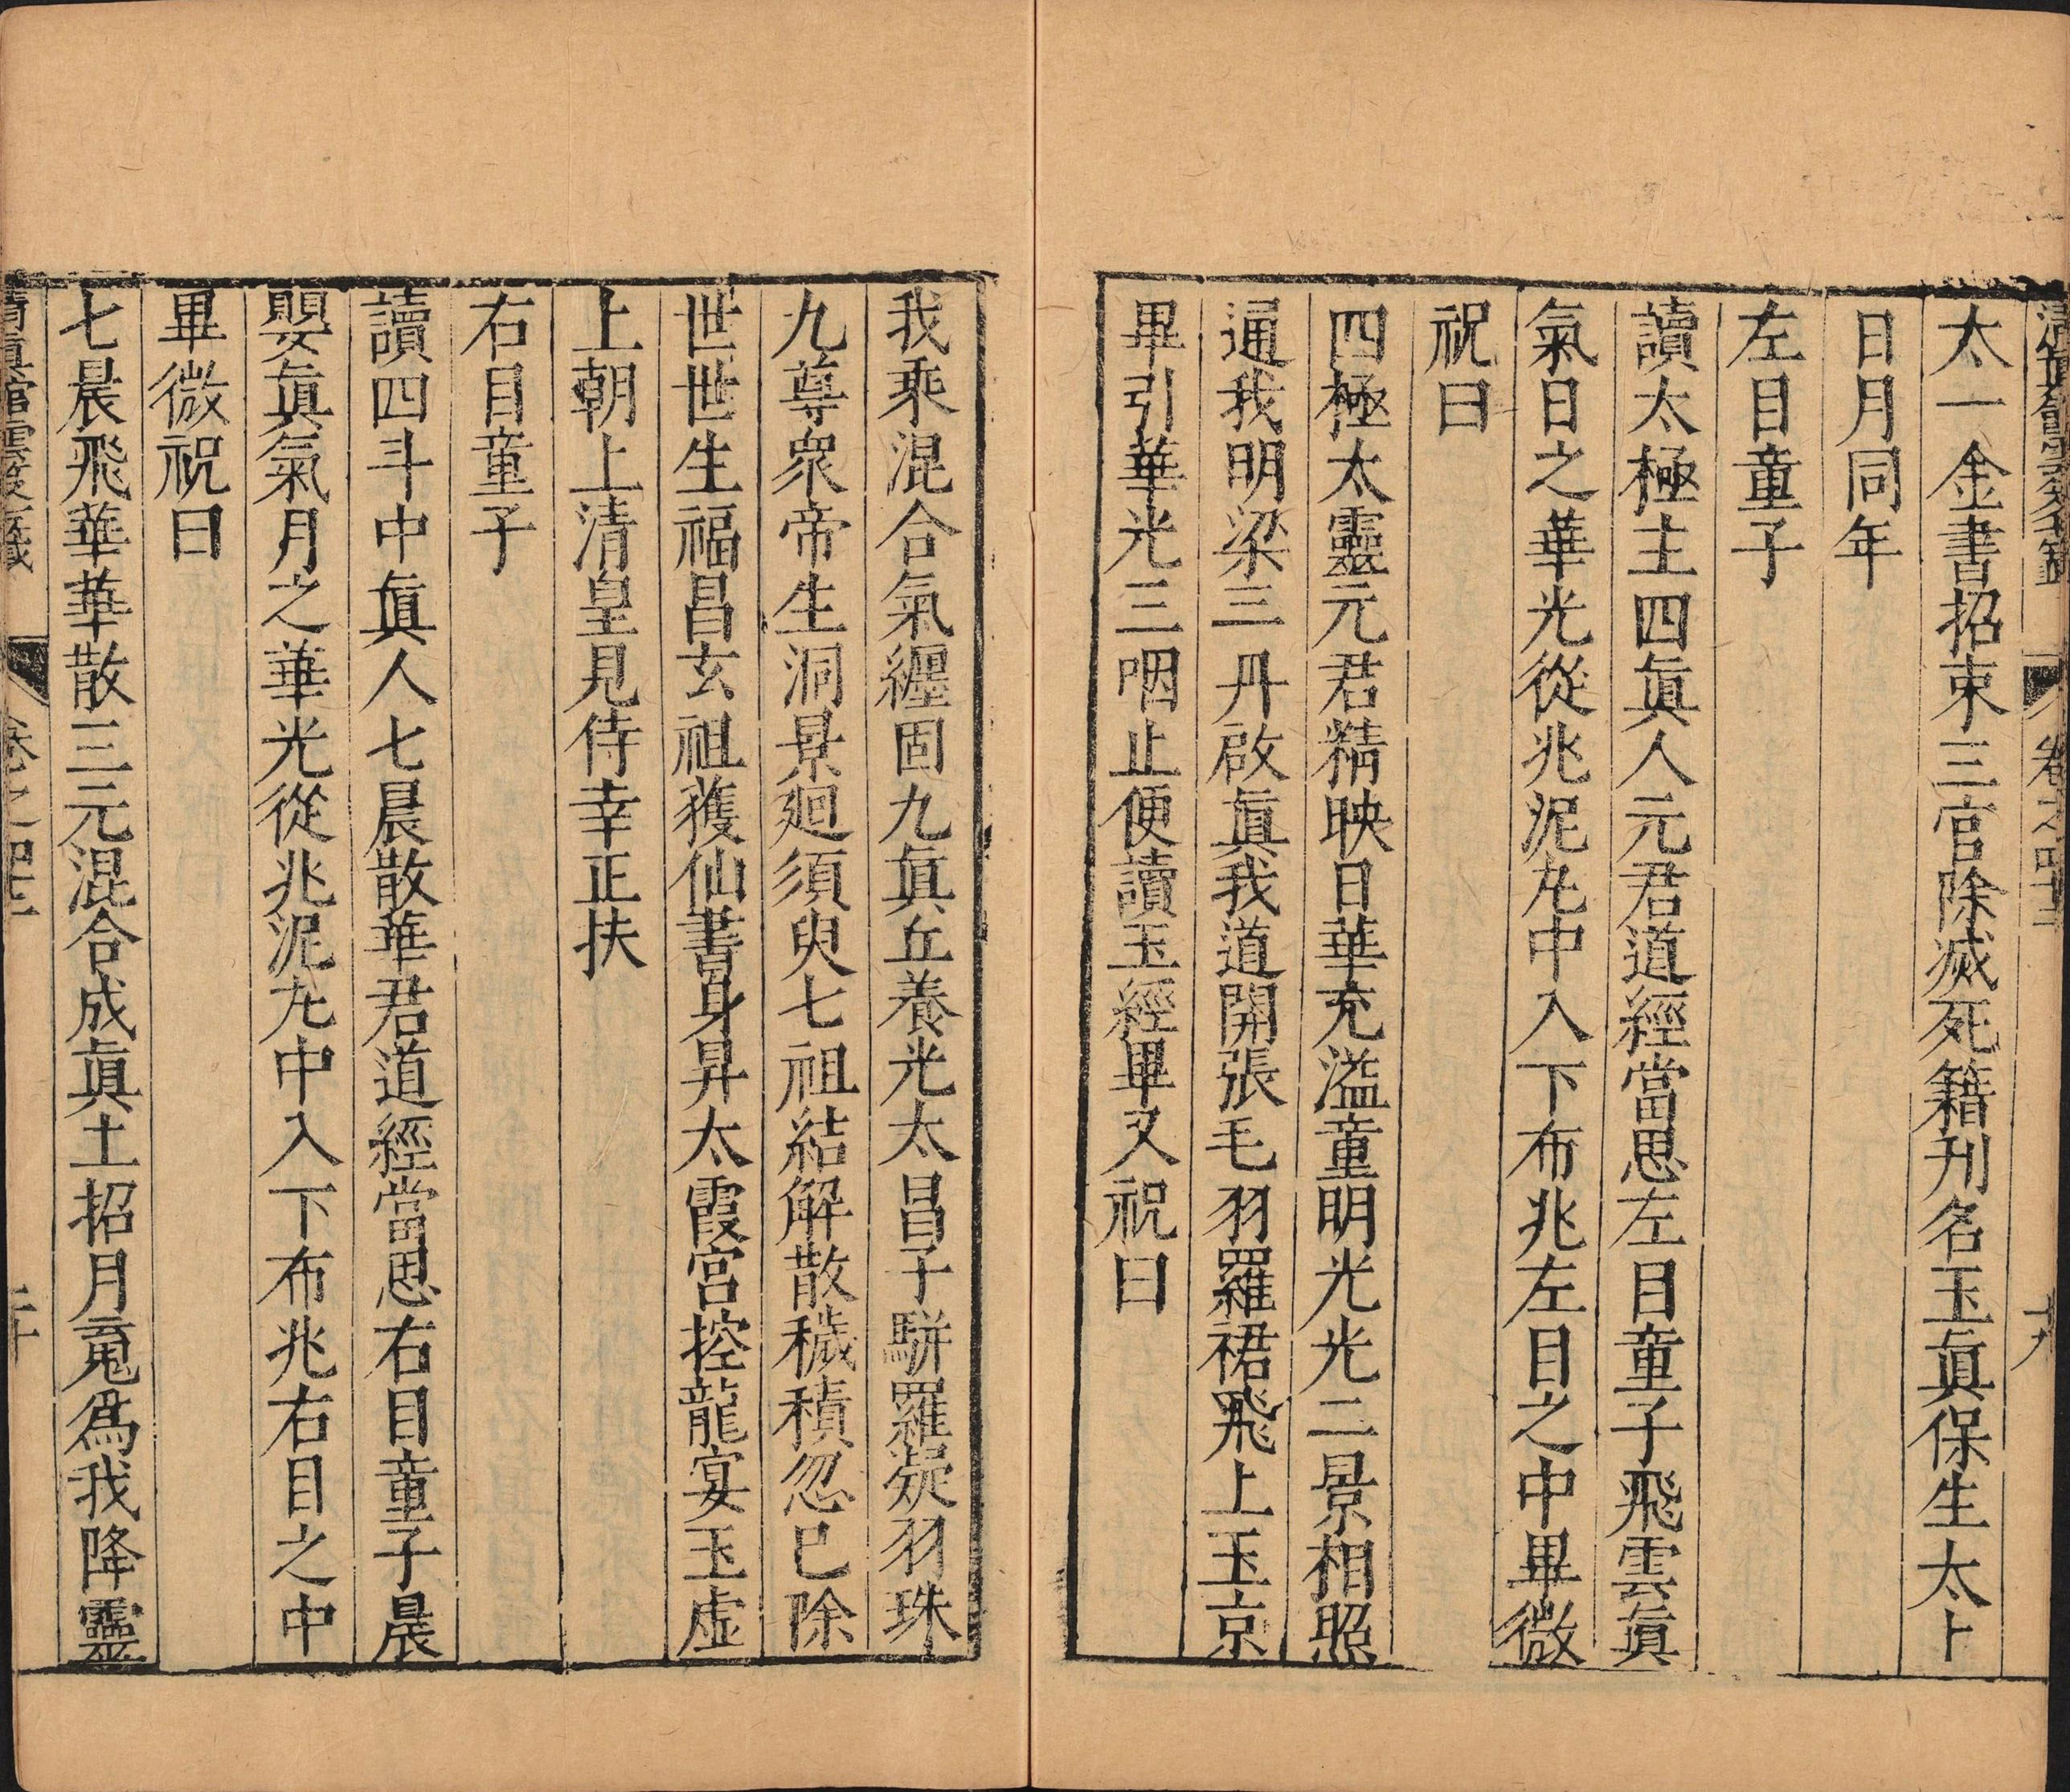 太一金書招束三官除滅死籍刋名玉眞保生太上
日月同年
左目童子
讀太極主四眞人元君道經當思左目童子飛雲眞
氣日之華光從兆泥丸中入下布兆左目之中畢微
祝曰
四極太靈元君精映日華充溢童明光光二景相照
通我明梁三丹啟眞我道開張毛羽羅裙飛上玉京
畢引華光三咽止便讀玉經畢又祝曰
我乘混合氣纏固九眞丘養光太昌子騈羅凝羽珠
九尊衆帝生洞景廻須臾七祖結解散穢積忽已除
世世生福昌玄祖獲仙書身昇太霞宮控龍宴玉虛
上朝上清皇見侍幸正扶
右目童子
讀四斗中眞人七晨散華君道經當思右目童子晨
嬰眞氣月之華光從兆泥丸中入下布兆右目之中
畢微祝曰
七晨飛華華散三元混合成眞土招月䰟爲我降靈